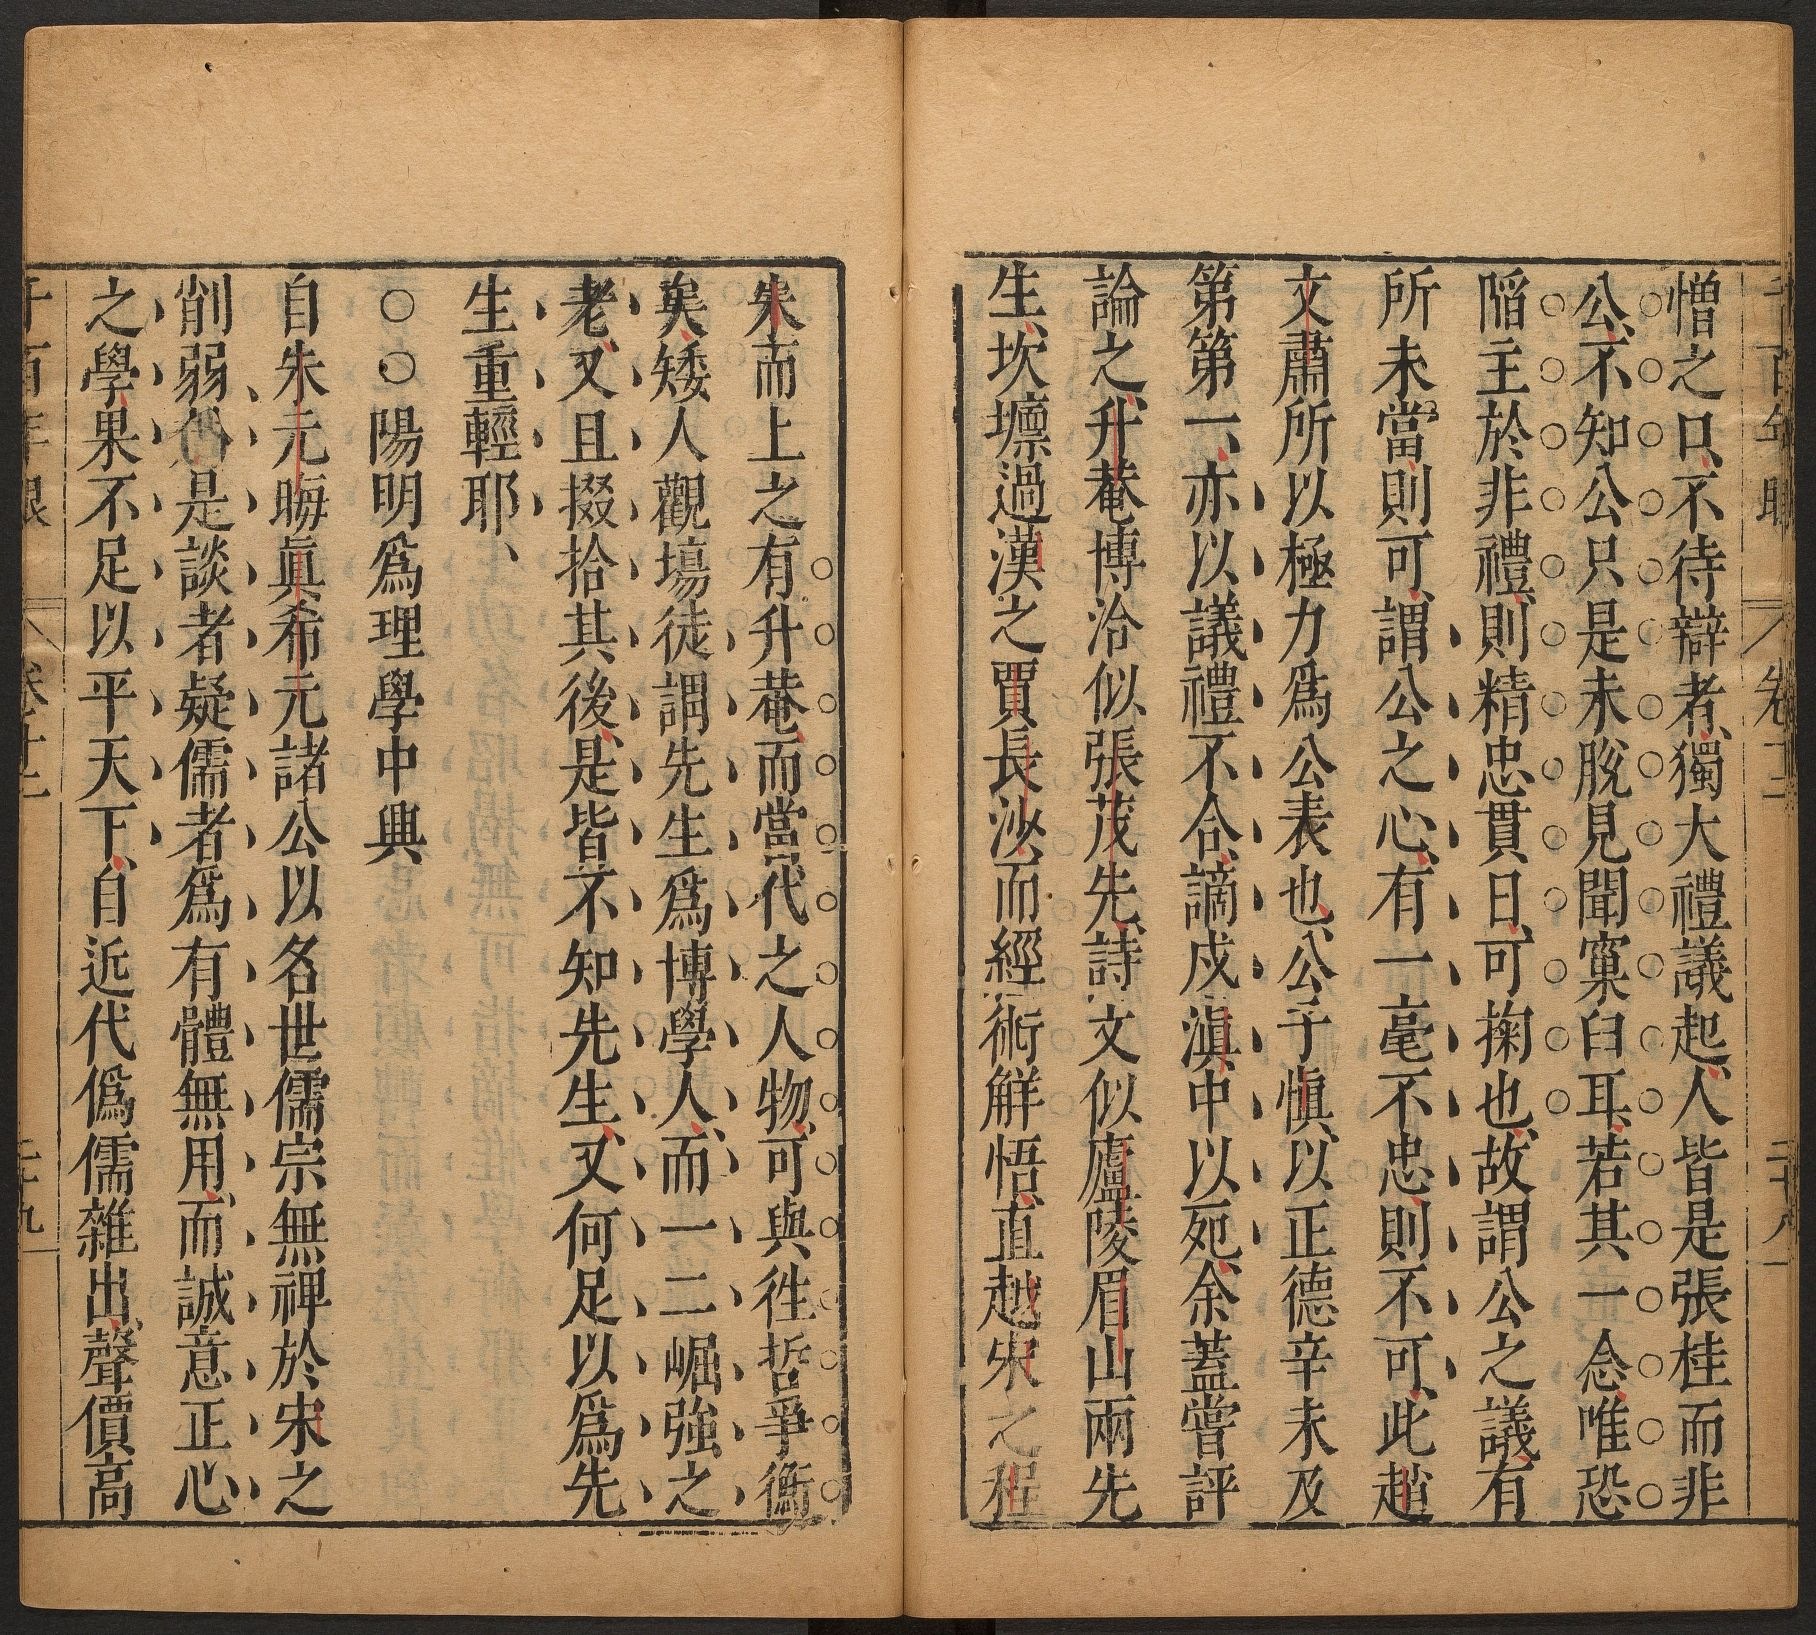 憎之只不待辯者獨大禮議起人皆是張桂而非
公不知公只是未脫見聞窠臼耳若其一念唯恐
陷主於非禮則精忠貫日可掬也故謂公之議有
所未當則可謂公之心有一毫不忠則不可此趙
文肅所以極力爲公表也公子愼以正德辛未及
第第一亦以議禮不合謫戍滇中以死余蓋嘗評
論之升菴博洽似張茂先詩文似廬陵眉山兩先
生坎壈過漢之賈長沙而經術解悟直越宋之程
朱而上之有升菴而當代之人物可與徃哲爭衡
矣矮人觀塲徒謂先生爲博學人而一二崛强之
老又且掇拾其後是皆不知先生又何足以爲先
生重輕耶
○○陽明爲理學中興
自朱元晦眞希元諸公以名世儒宗無裨於宋之
削弱於是談者疑儒者爲有體無用而誠意正心
之學果不足以平天下自近代僞儒雜出聲價高
千百年眼 卷十二 二十九